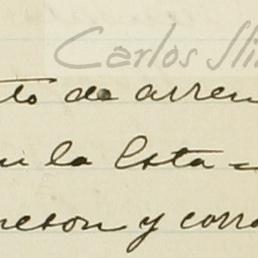 Carlos Sli
to de arren
en la Esta=
meson y corra